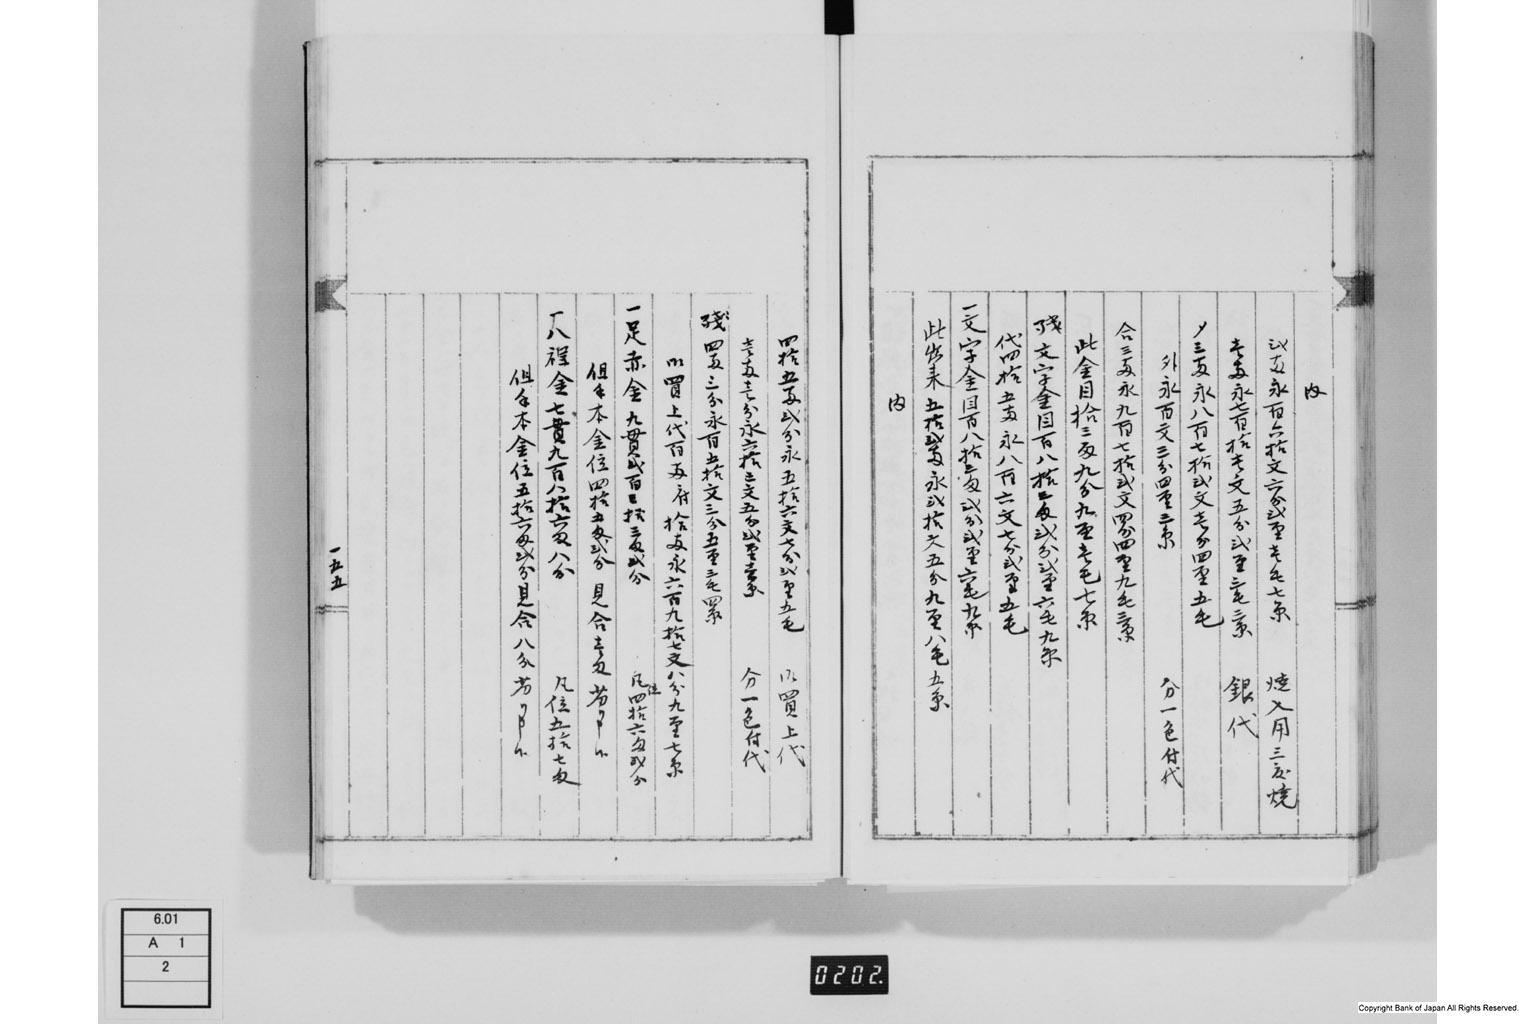 内
弐両永百六拾文六分弐厘壱毛七糸 焼入用三度焼
壱両永七百拾壱文五分弐厘三毛三糸 銀代
〆三両永八百七拾弐文壱分四厘五毛
外永百文三分四厘三糸 分一色付代
合三両永九百七拾弐文四分四厘九毛三糸
此金目拾三匁九分九厘壱毛七糸
残文字金目百八拾三匁弐分弐厘六毛九糸
代四拾五両永八百六文七分弐厘五毛
一文字金目百八拾三匁弐分弐厘六毛九糸
此出来五拾弐両永弐拾文五分九厘八毛五糸
内
四拾五両弐分永五拾六文七分弐厘五毛 御買上代
壱両壱分永六拾三文五分弐厘壱糸 分一色付代
残四両三分永百五拾文三分五厘三毛四糸
御買上代百両ニ付拾両永六百九拾七文八分九厘七糸
一足赤金九貫弐百三拾三匁弐分 凡位四拾六匁弐分
但手本金位四拾五匁弐分見合壱匁劣ル
一八程金七貫九百八拾六匁八分 凡位五拾七匁
但手本金位五拾六匁弐分見合八分劣ル
一五五
6.01
A 1
2
0202.
Copyright Bank of Japan All Rights Reserved.